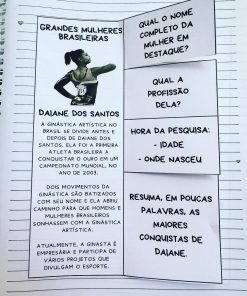 GRANDES MULHERES
BRASILEIRAS
DAIANE DOS SANTOS
A GINÁSTICA ARTÍSTICA NO
BRASIL SE DIVIDE ANTES E
DEPOIS DE DAIANE DOS
SANTOS. ELA FOI A PRIMEIRA
ATLETA BRASILEIRA A
CONQUISTAR O OURO EM UM
CAMPEONATO MUNDIAL, NO
ANO DE 2003.
DOIS MOVIMENTOS DA
GINÁSTICA SÃO BATIZADOS
COM SEU NOME E ELA ABRIU
CAMINHO PARA QUE HOMENS E
MULHERES BRASILEIROS
SONHASSEM COM A GINÁSTICA
ARTÍSTICA.
ATUALMENTE, A GINASTA É
EMPRESÁRIA E PARTICIPA DE
VÁRIOS PROJETOS QUE
DIVULGAM O ESPORTE.
QUAL O NOME
COMPLETO DA
MULHER EM
DESTAQUE?
QUAL A
PROFISSÃO
DELA?
HORA DA PESQUISA:
- IDADE
- ONDE NASCEU
RESUMA, EM POUCAS
PALAVRAS, AS
MAIORES
CONQUISTAS DE
DAIANE.